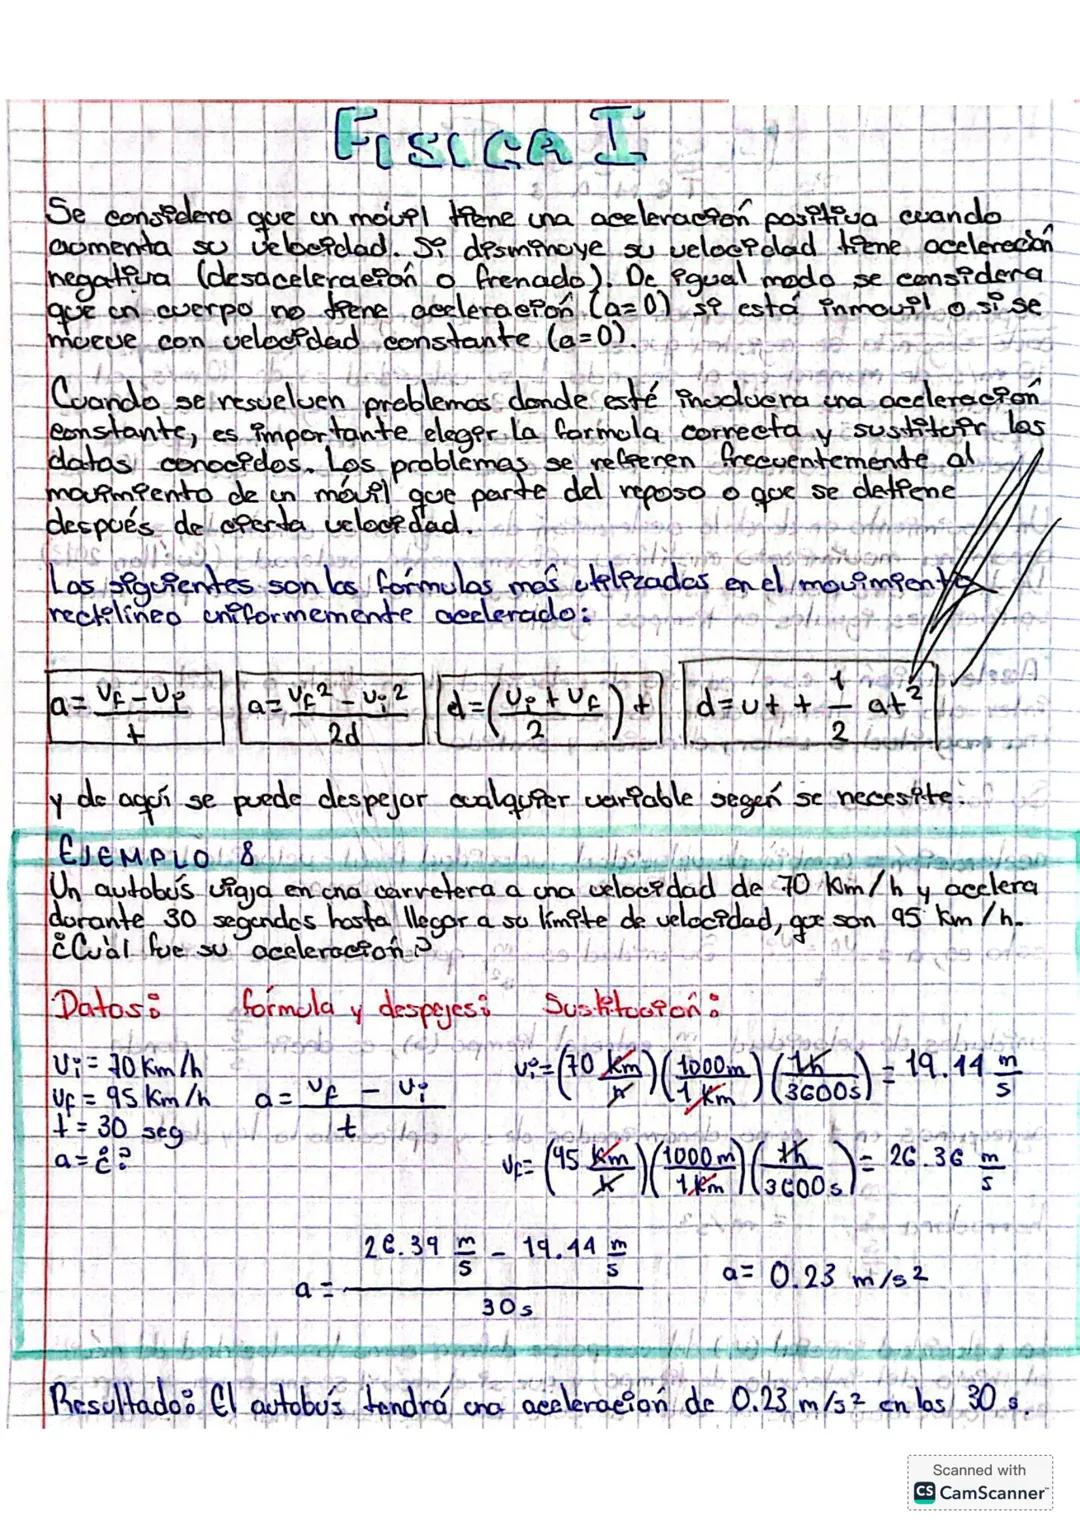 FISICA I
Se considera que un móvil tiene una aceleración positiva cuando
aumenta su velocidad. Si disminuye su velocidad tiene aceleración
negativa (desaceleración o frenado). De igual modo se considera
que un cuerpo no tiene aceleración (a=0) si está inmovil o si se
mueve con velocidad constante (a=0).
Cuando se resuelven problemas donde esté involucra una aceleración
constante, es importante elegir la formula correcta y sustituir los
datos conocidos. Los problemas se refieren frecuentemente al
movimiento de un móvil que parte del reposo o que se detiene
después de cierta velocidad.
Las siguientes son las fórmulas más utilizadas en el movimiento
rectilíneo uniformemente acelerado:
a = (Vf - Vi) / t   a = (Vf² - Vi²) / 2d   d = ((Vi + Vf) / 2) t   d = vt + 1/2 at²
y de aquí se puede despejar cualquier variable según se necesite.
EJEMPLO 8
Un autobús viaja en una carretera a una velocidad de 70 km/h y acelera
durante 30 segundos hasta llegar a su límite de velocidad, que son 95 km/h.
¿Cuál fue su aceleración?
Datos: fórmula y despejes: Sustitución:
Vi = 70 Km/h
Vf = 95 Km/h
t = 30 seg
a = ¿?
a = (Vf - Vi) / t
Vi = (70 km/h) (1000m / 1 Km) (1h / 3600s) = 19.44 m/s
Vf = (95 Km/h) (1000 m / 1 Km) (1h / 3600s) = 26.36 m/s
a = (26.39 m/s - 19.44 m/s) / 30s   a = 0.23 m/s²
Resultado: El autobús tendrá una aceleración de 0.23 m/s² en los 30 s.
Scanned with
CS CamScanner